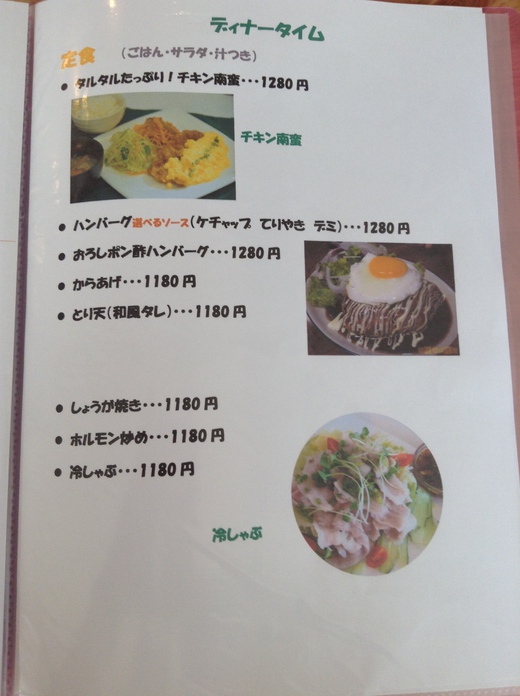 ディナータイム
定食 (ごはん・サラダ・汁つき)
● タルタルたっぷり！チキン南蛮・・・1280円
チキン南蛮
● ハンバーグ選べるソース(ケチャップ てりやき デミ)・・・1280円
● おろしポン酢ハンバーグ・・・1280円
● からあげ・・・1180円
● とり天(和風タレ)・・・1180円
● しょうが焼き・・・1180円
● ホルモン炒め・・・1180円
● 冷しゃぶ・・・1180円
冷しゃぶ